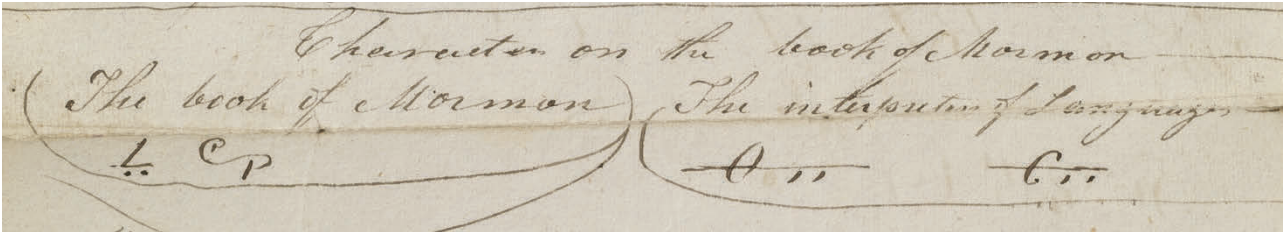 Characters on the book of Mormon
The book of Mormon The interpreters of Languages